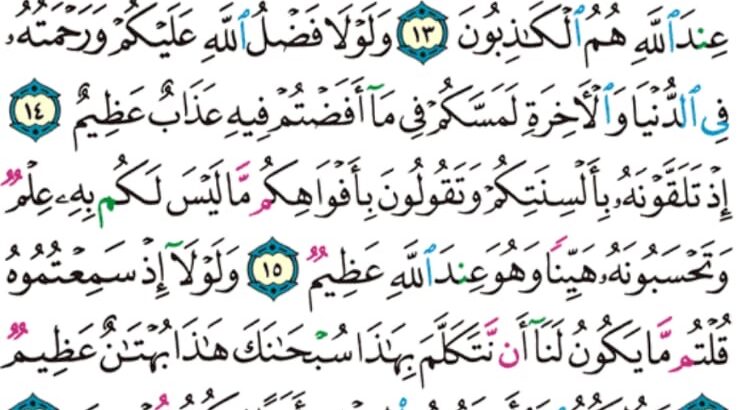 عِندَ ٱللَّهِ هُمُ ٱلْكَـٰذِبُونَ ١٣ وَلَوْلَا فَضْلُ ٱللَّهِ عَلَيْكُمْ وَرَحْمَتُهُۥ
فِى ٱلدُّنْيَا وَٱلْأَخِرَةِ لَمَسَّكُمْ فِى مَآ أَفَضْتُمْ فِيهِ عَذَابٌ عَظِيمٌ ١٤
إِذْ تَلَقَّوْنَهُۥ بِأَلْسِنَتِكُمْ وَتَقُولُونَ بِأَفْوَاهِكُم مَّا لَيْسَ لَكُم بِهِۦ عِلْمٌ
وَتَحْسَبُونَهُۥ هَيِّنًا وَهُوَ عِندَ ٱللَّهِ عَظِيمٌ ١٥ وَلَوْلَآ إِذْ سَمِعْتُمُوهُ
قُلْتُم مَّا يَكُونُ لَنَآ أَن نَّتَكَلَّمَ بِهَـٰذَا سُبْحَـٰنَكَ هَـٰذَا بُهْتَـٰنٌ عَظِيمٌ